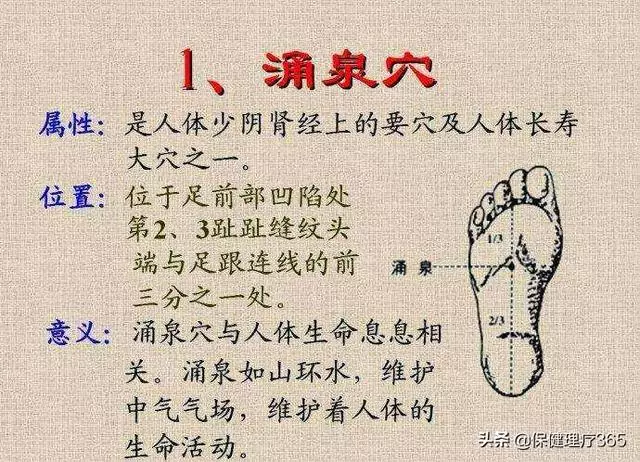 1、涌泉穴
属性：是人体少阴肾经上的要穴及人体长寿
大穴之一。
位置：位于足前部凹陷处
第2、3趾趾缝纹头
端与足跟连线的前
三分之一处。
意义：涌泉穴与人体生命息息相
关。涌泉如山环水，维护
中气气场，维护着人体的
生命活动。
1/3
涌泉
2/3
头条 @保健理疗365